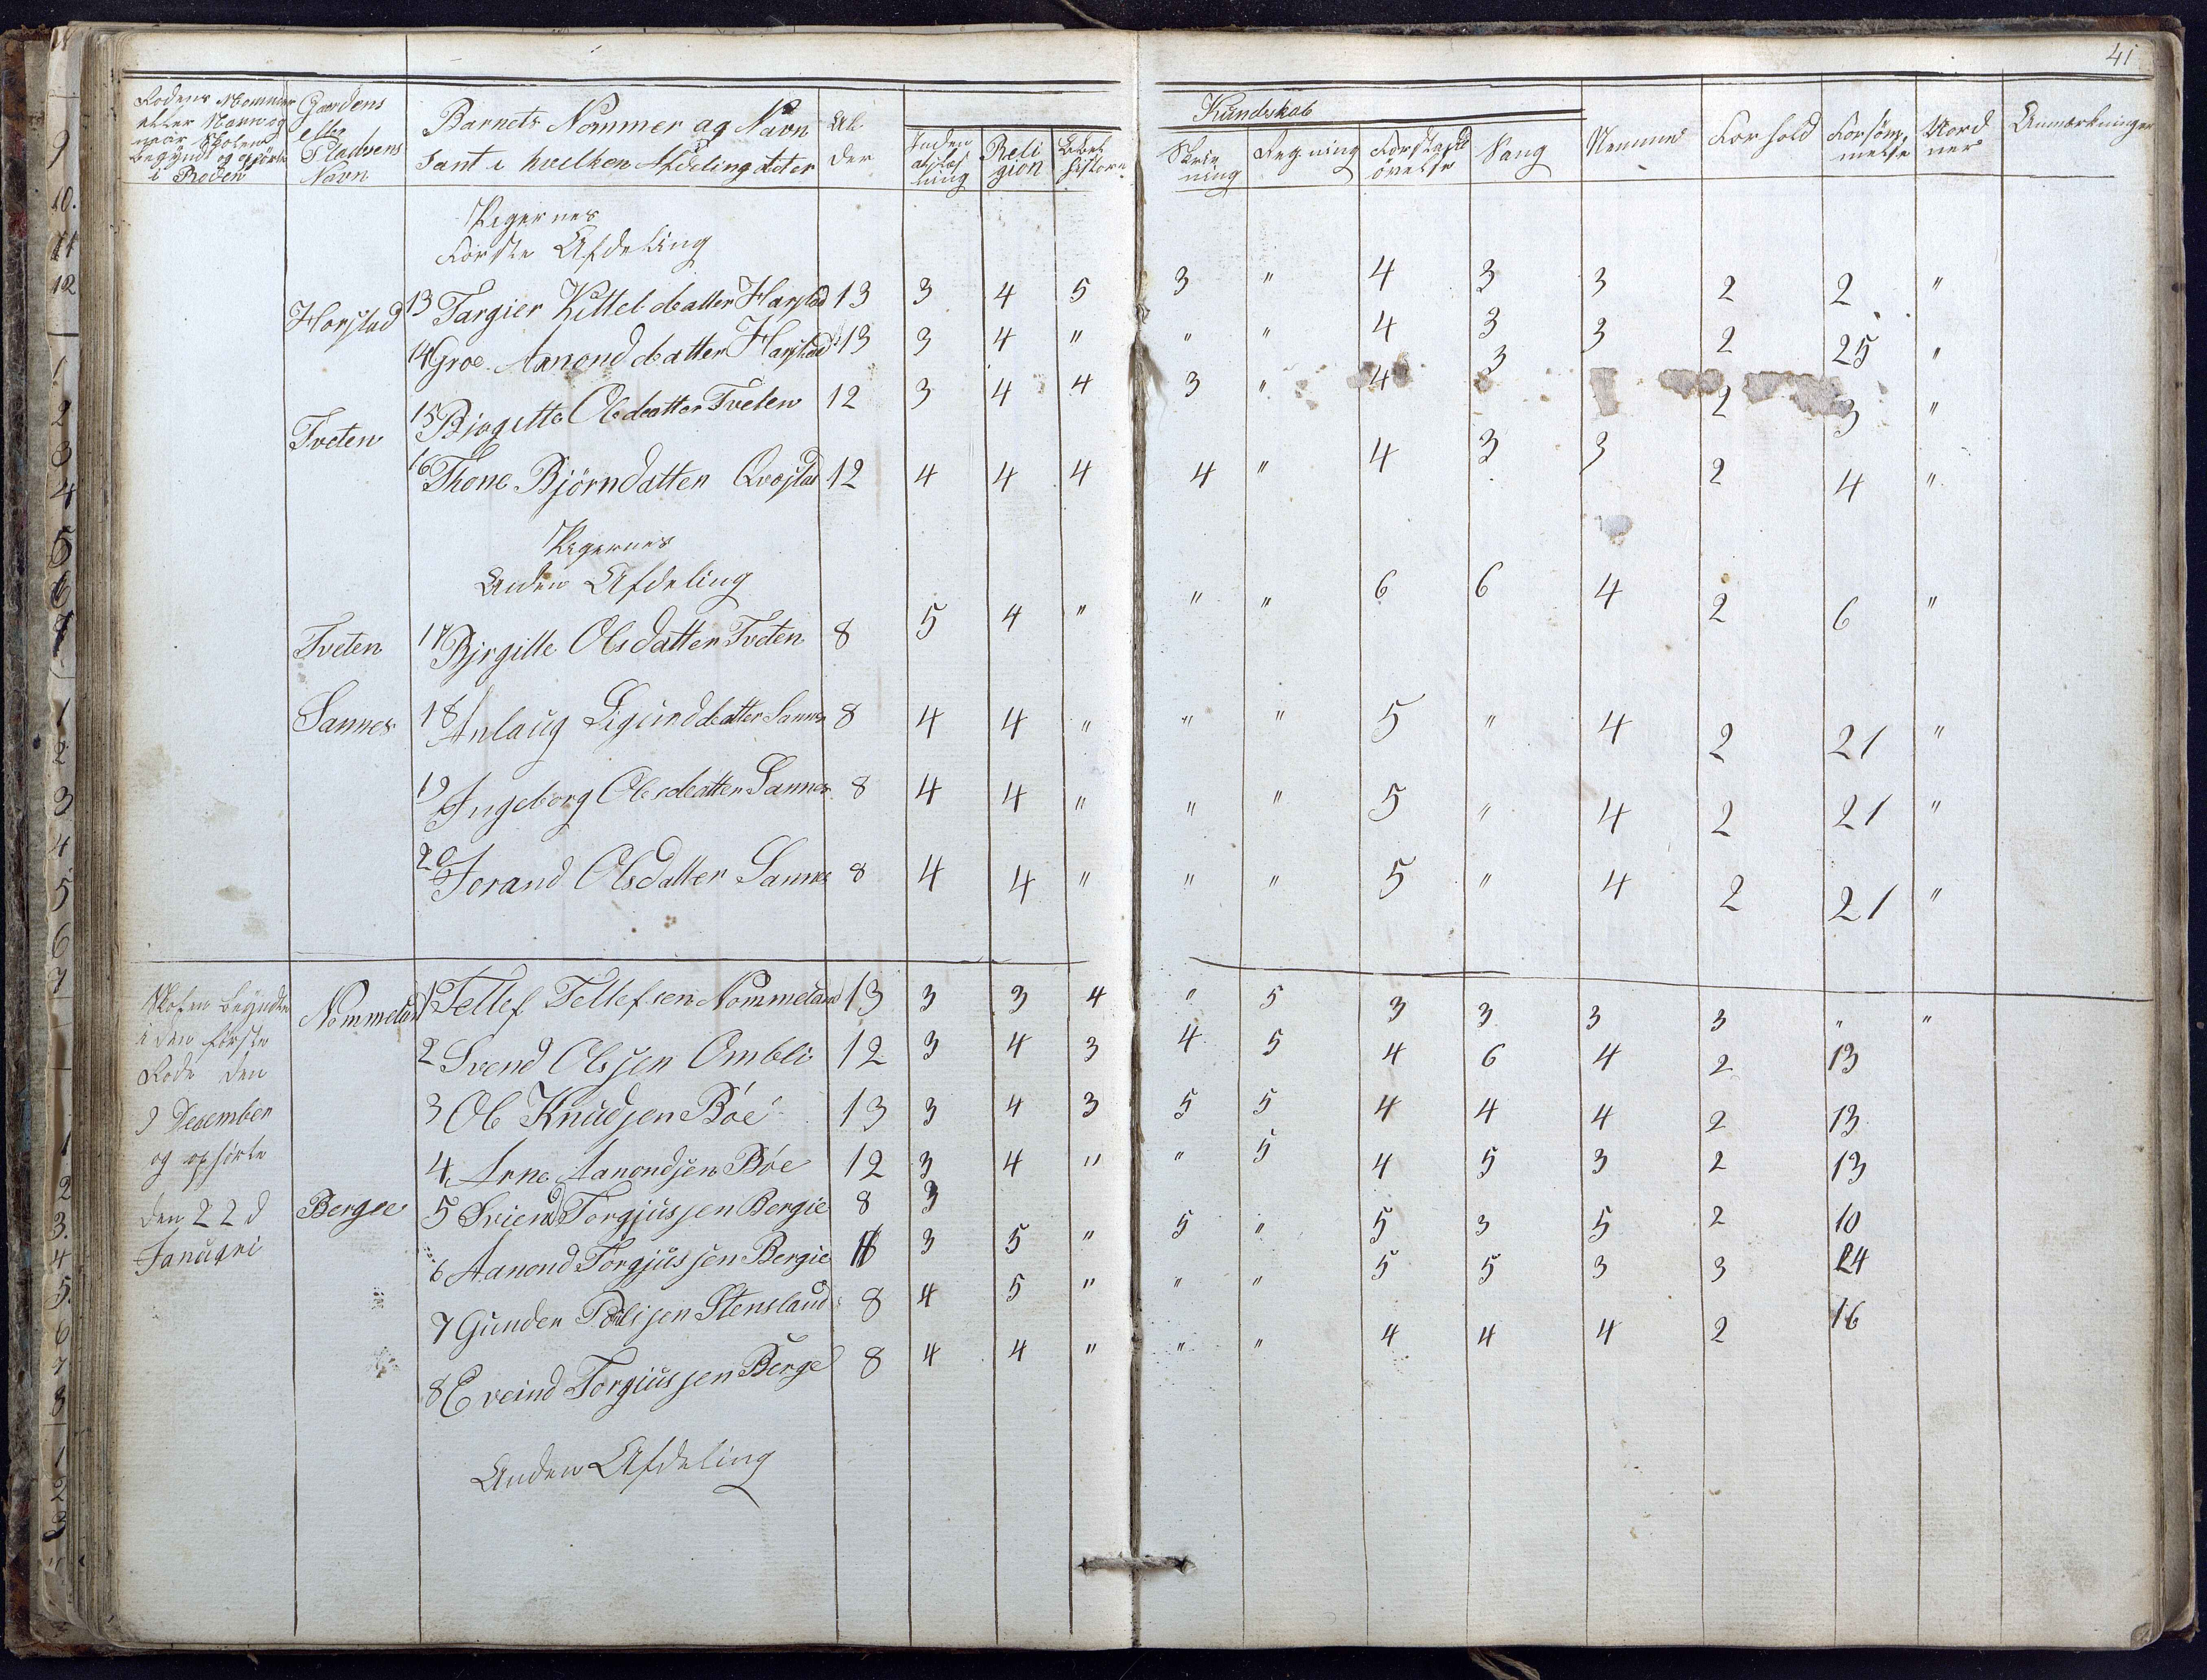 41
Rodens Nommer
eller Navn og
naar Skolen
begyndt og ophørte
i Roden
Gaardens
eller
Pladsens
Navn
Barnets Nommer og Navn
samt i hvilken Afdeling det er
Al
der
Kundskab
Inden
adlæs
ning
Reli
gion
Bibel
historie
Skriv
ning
Regning
Forstands
øvelse
Sang
Nemme
Forhold
Forsøm
melse
Nord
ner
Anmærkninger
Pigernes
Første Afdeling
Harstad 13 Targier Kittelsdatter Harstad 13 3 4 5 3 " 4 3 3 2 2 "
14 Groe Aanonddatter Harstad 13 3 4 " " " 4 3 3 2 25 "
Tveten 15 Birgitte Olsdatter Tveten 12 3 4 4 3 " 4 3 2 3 "
16 Thone Bjørndatter Qvastad 12 4 4 4 4 " 4 3 3 2 4 "
Pigernes
Anden Afdeling
Tveten 17 Birgitte Olsdatter Tveten 8 5 4 " " " 6 6 4 2 6 "
Sannes 18 Anlaug Sigurddatter Sannes 8 4 4 " " " 5 " 4 2 21 "
19 Ingeborg Olesdatter Sannes 8 4 4 " " " 5 " 4 2 21 "
20 Jorand Olsdatter Sannes 8 4 4 " " " 5 " 4 2 21 "
Skolen begyndte
i den første
Rode den
9 December
og ophørte
den 22d
Januari
Nommeland 1 Tellef Tellefsen Nommeland 13 3 3 4 " 5 3 3 3 3 " "
2 Svend Olsen Ombli 12 3 4 3 4 5 4 6 4 2 13
3 Ole Knudsen Bøe 13 3 4 3 5 5 4 4 4 2 13
4 Arne Aanondsen Bøe 12 3 4 " " 5 4 5 3 2 13
Bergee 5 Sviend Torgjussen Bergie 8 3
6 Aanond Torgjussen Bergie 11 3 5 " 5 " 5 3 5 2 10
7 Gunder Poulsen Stensland 8 4 5 " " " 5 5 3 3 24
8 Eveind Torgiussen Berge 8 4 4 " " " 4 4 4 2 16
Anden Afdeling